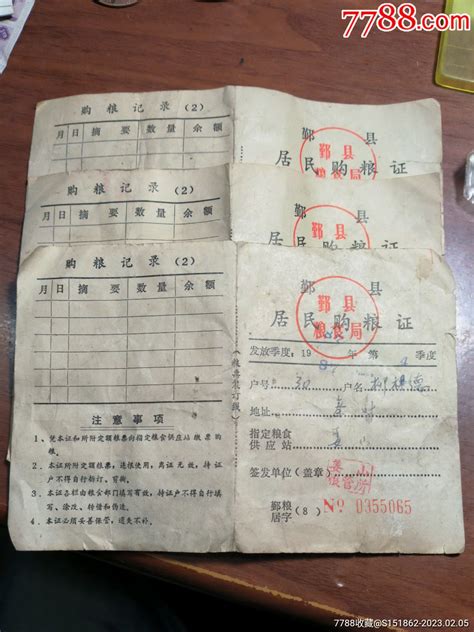 7788.com
购粮记录(2)
月 日 摘要 数量 余额
鄞县
居民购粮证
鄞县
购粮记录(2)
月 日 摘要 数量 余额
居民购粮证
鄞县
购粮记录(2)
月 日 摘要 数量 余额
注意事项
1、凭本证和所附定额粮票向指定粮食供应站缴票购粮。
2、本证所附定额粮票，连根使用，离证无效，持证户不得自行拆订、剪撕。
3、本证各栏由粮食部门填写有效，持证户不得自行填写、涂改、转借和伪造。
4、本证必须妥善保管，遗失不补。
鄞县
居民购粮证
鄞县
粮食局
发放季度：19 年第 季度
户号 户名 柳祖德
地址：
指定粮食
供应站
签发单位（盖章）
鄞粮
居字 (8) № 0355065
7788收藏@S151862-2023.02.05